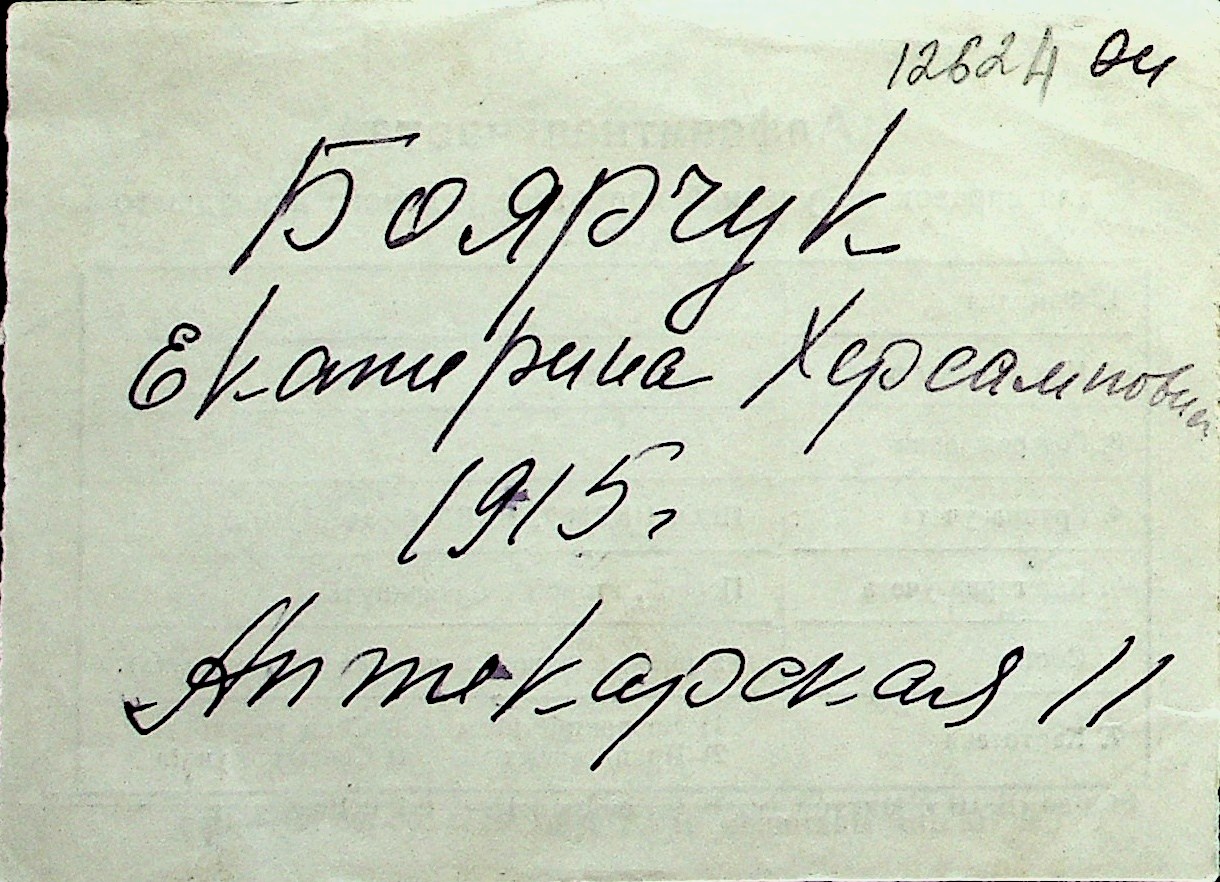 12624 ои
Боярчук
Екатерина Херсамповна
1915г
Аптекарская 11